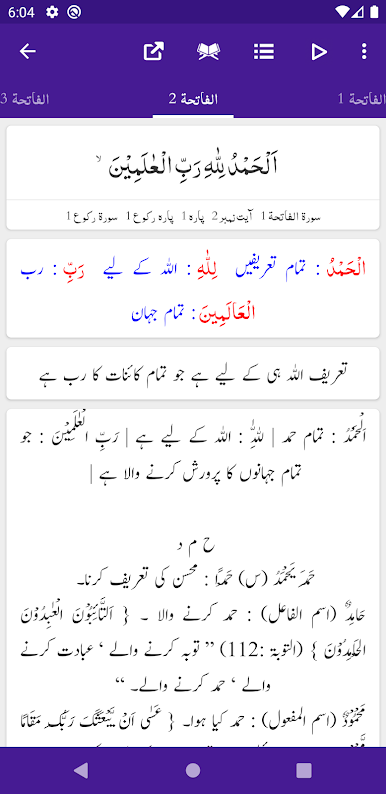 6:04
الفاتحة 1
الفاتحة 2
الفاتحة 3
اَلْحَمْدُ لِلّٰهِ رَبِّ الْعٰلَمِیْنَ ۙ
سورۃ الفاتحة 1 آیت نمبر 2 پارہ 1 پارہ رکوع 1 سورۃ رکوع 1
الْحَمْدُ : تمام تعریفیں لِلّٰهِ : اللہ کے لیے رَبِّ : رب
الْعَالَمِينَ : تمام جہان
تعریف اللہ ہی کے لیے ہے جو تمام کائنات کا رب ہے
اَلْحَمْدُ : تمام حمد | لِلّٰهِ : اللہ کے لیے ہے | رَبِّ الْعٰلَمِيْنَ : جو
تمام جہانوں کا پرورش کرنے والا ہے |
ح م د
حَمِدَ يَحْمَدُ (س) حَمْدًا : محسن کی تعریف کرنا۔
حَامِدٌ (اسم الفاعل) : حمد کرنے والا ۔ { اَلتَّآئِبُوْنَ الْعٰبِدُوْنَ
الْحَامِدُوْنَ } (التوبۃ :112) ’’ توبہ کرنے والے ‘ عبادت کرنے
والے ‘ حمد کرنے والے۔ ‘‘
مَحْمُوْدٌ (اسم المفعول) : حمد کیا ہوا۔ { عَسٰی اَنْ يَّبْعَثَكَ رَبُّكَ مَقَامًا